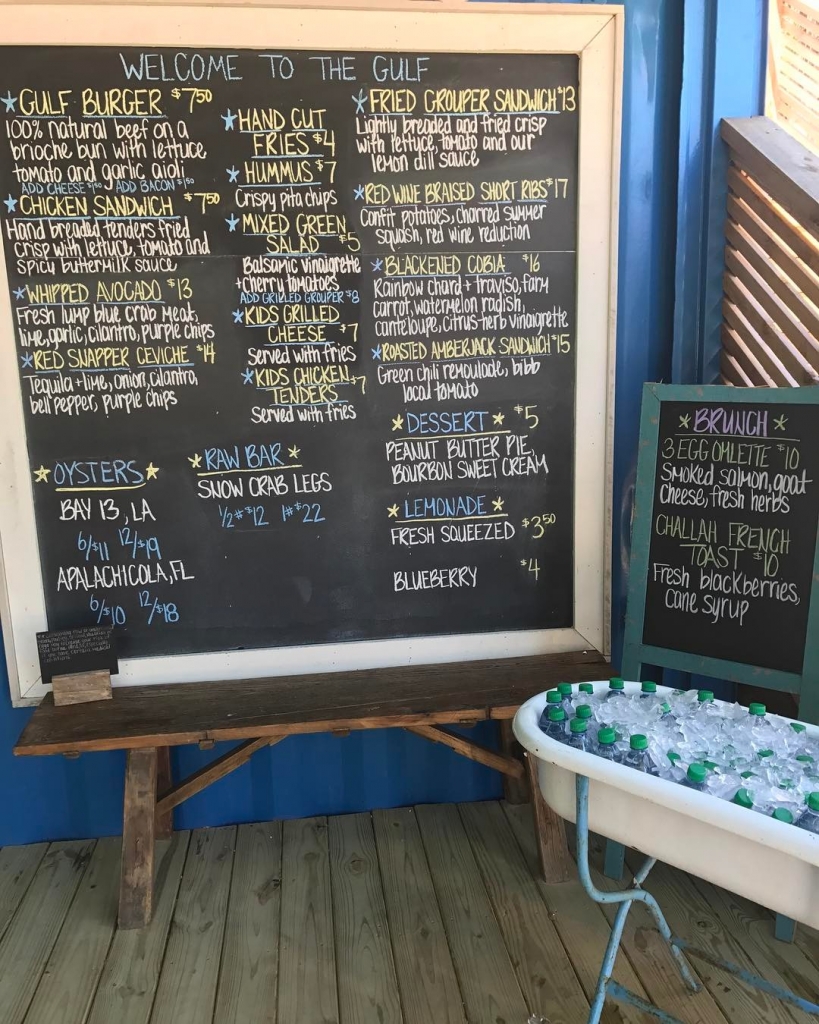 WELCOME TO THE GULF
GULF BURGER $7.50
100% natural beef on a
brioche bun with lettuce,
tomato and garlic aioli
ADD CHEESE $1.50 ADD BACON $1.50
CHICKEN SANDWICH $7.50
Hand breaded tenders fried
crisp with lettuce, tomato and
spicy buttermilk sauce
WHIPPED AVOCADO $13
Fresh lump blue crab meat,
lime, garlic, cilantro, purple chips
RED SNAPPER CEVICHE $14
Tequila + lime, onion, cilantro,
bell pepper, purple chips
HAND CUT
FRIES $4
HUMMUS $7
Crispy pita chips
MIXED GREEN
SALAD $5
Balsamic vinaigrette
+ cherry tomatoes
ADD GRILLED GROUPER $8
KIDS GRILLED
CHEESE $7
Served with fries
KIDS CHICKEN
TENDERS $7
Served with fries
FRIED GROUPER SANDWICH $13
Lightly breaded and fried crisp
with lettuce, tomato and our
lemon dill sauce
RED WINE BRAISED SHORT RIBS $17
Confit potatoes, charred summer
squash, red wine reduction
BLACKENED COBIA $16
Rainbow chard + traviso, farm
carrot, watermelon radish,
canteloupe, citrus-herb vinaigrette
ROASTED AMBERJACK SANDWICH $15
Green chili remoulade, bibb
local tomato
OYSTERS
BAY 13, LA
6/$11 12/$19
APALACHICOLA, FL
6/$10 12/$18
RAW BAR
SNOW CRAB LEGS
1/2# $12 1# $22
DESSERT $5
PEANUT BUTTER PIE,
BOURBON SWEET CREAM
LEMONADE
FRESH SQUEEZED $3.50
BLUEBERRY $4
BRUNCH
3 EGG OMLETTE $10
Smoked salmon, goat
cheese, fresh herbs
CHALLAH FRENCH
TOAST $10
Fresh blackberries,
cane syrup